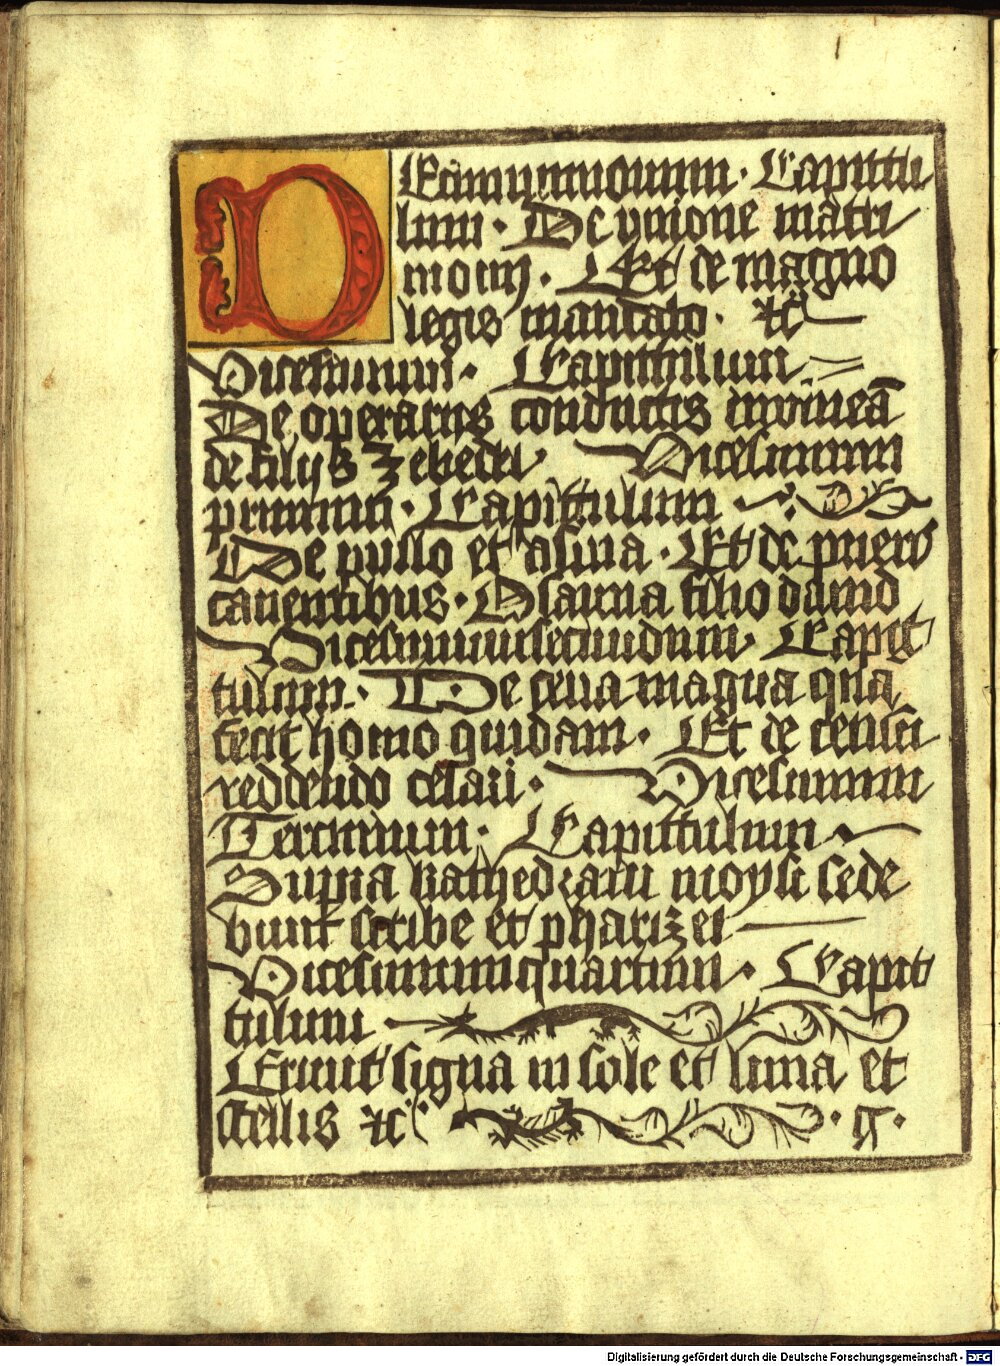 DEcimumnonum · Capittu
lum · De vnione matri
monij · Et de magno
legis mandato · ꝛc̃
Vicesimum · Capittulum
De operarijs conductis in vineã
de filijs Zebedei · Vicesimum
primum · Capittulum
De pullo et asina · Et de pueris
canentibus · Osanna filio dauid
Vicesimumsecundum · Capit
tulum · De cena magna qua
fecit homo quidam · Et de censu
reddendo cesari · Vicesimum
Tercium · Capittulum
Supra kathedram moysi sede
bunt scribe et pharizei
Vicesimumquartum · Capit
tulum ·
Erunt signa in sole et luna et
stellis ꝛc̃
Digitalisierung gefördert durch die Deutsche Forschungsgemeinschaft - DFG